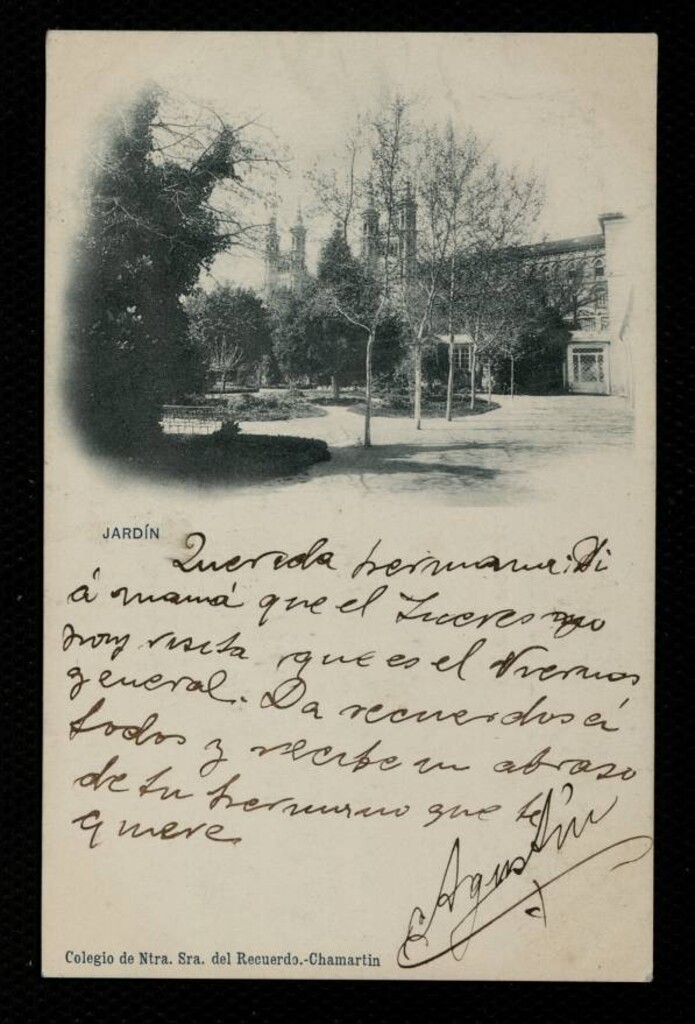 JARDÍN
Querida hermana: Di
á mamá que el Jueves no
hay visita que es el Viernes
general. Da recuerdos á
todos y recibe un abraso
de tu hermano que te
quiere
Agustín
Colegio de Ntra. Sra. del Recuerdo.-Chamartin